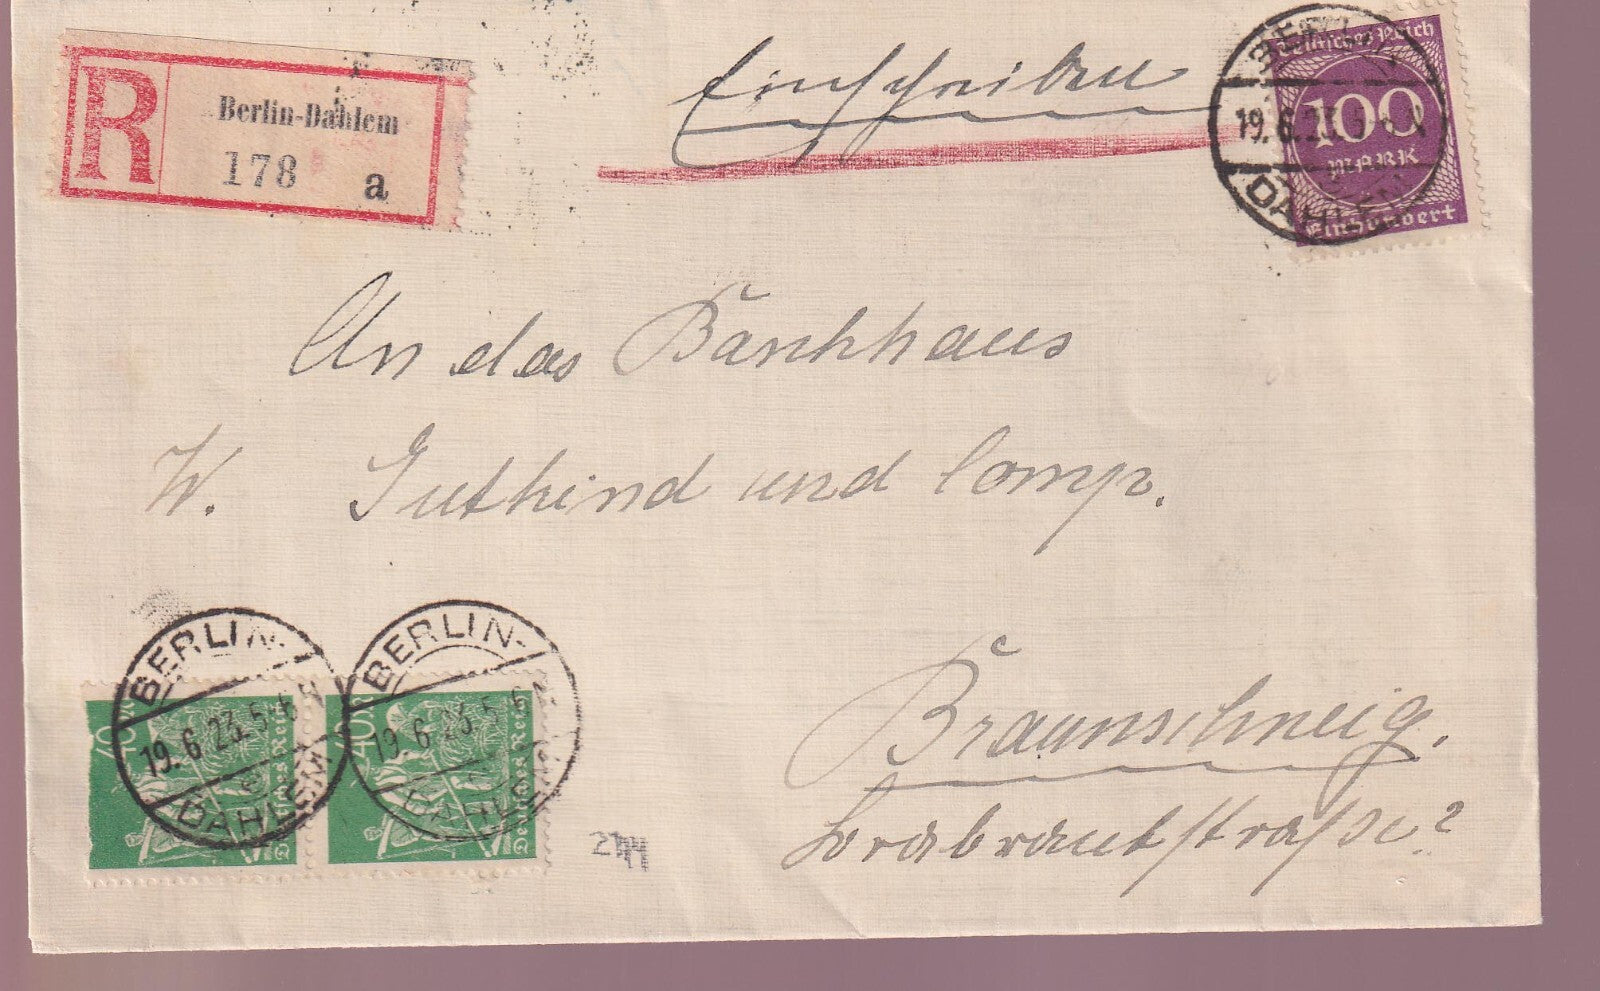 R
Berlin-Dahlem
178 a
Einschreiben
Deutsches Reich
100
MARK
Einhundert
BERLIN-
19. 6. 23. 5-6 N
DAHLEM
An das Bankhaus
W. Gutkind und Comp.
Braunschweig.
BERLIN-
19. 6 23. 5-6
DAHLEM
40
Deutsches Reich
BERLIN-
19 6 23. 5-6
DAHLEM
40
Deutsches Reich